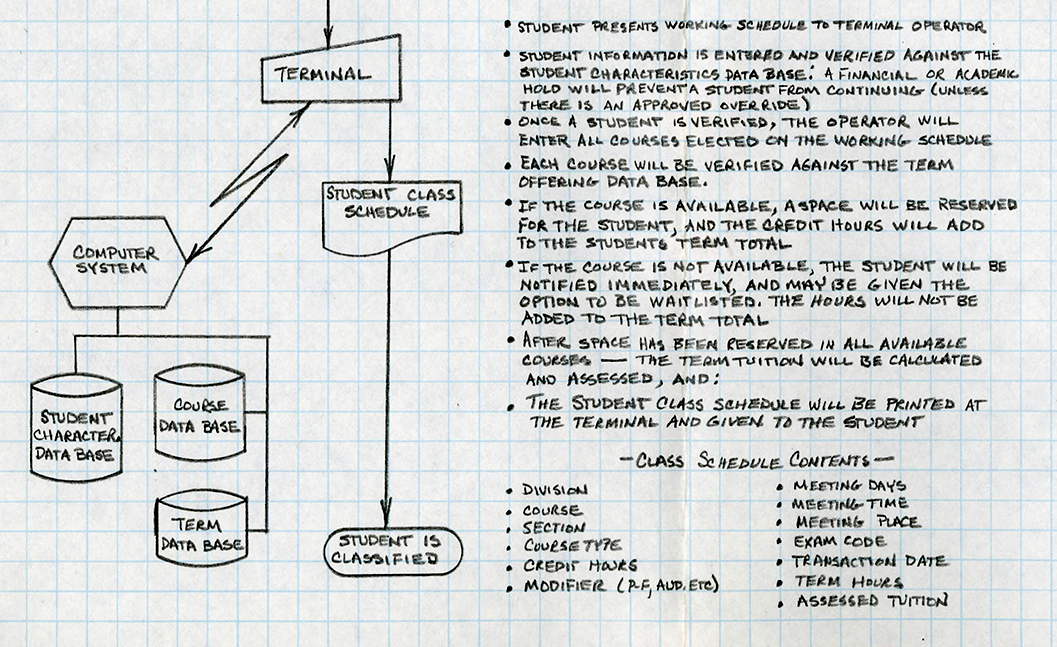 TERMINAL
STUDENT CLASS
SCHEDULE
COMPUTER
SYSTEM
STUDENT
CHARACTER.
DATA BASE
COURSE
DATA BASE
TERM
DATA BASE
STUDENT IS
CLASSIFIED
• STUDENT PRESENTS WORKING SCHEDULE TO TERMINAL OPERATOR
• STUDENT INFORMATION IS ENTERED AND VERIFIED AGAINST THE
STUDENT CHARACTERISTICS DATA BASE: A FINANCIAL OR ACADEMIC
HOLD WILL PREVENT A STUDENT FROM CONTINUING (UNLESS
THERE IS AN APPROVED OVERRIDE)
• ONCE A STUDENT IS VERIFIED, THE OPERATOR WILL
ENTER ALL COURSES ELECTED ON THE WORKING SCHEDULE
• EACH COURSE WILL BE VERIFIED AGAINST THE TERM
OFFERING DATA BASE.
• IF THE COURSE IS AVAILABLE, A SPACE WILL BE RESERVED
FOR THE STUDENT, AND THE CREDIT HOURS WILL ADD
TO THE STUDENTS TERM TOTAL
• IF THE COURSE IS NOT AVAILABLE, THE STUDENT WILL BE
NOTIFIED IMMEDIATELY, AND MAY BE GIVEN THE
OPTION TO BE WAITLISTED. THE HOURS WILL NOT BE
ADDED TO THE TERM TOTAL
• AFTER SPACE HAS BEEN RESERVED IN ALL AVAILABLE
COURSES — THE TERM TUITION WILL BE CALCULATED
AND ASSESSED, AND:
• THE STUDENT CLASS SCHEDULE WILL BE PRINTED AT
THE TERMINAL AND GIVEN TO THE STUDENT
— CLASS SCHEDULE CONTENTS —
• DIVISION
• COURSE
• SECTION
• COURSE TYPE
• CREDIT HOURS
• MODIFIER (P-F, AUD. ETC)
• MEETING DAYS
• MEETING TIME
• MEETING PLACE
• EXAM CODE
• TRANSACTION DATE
• TERM HOURS
• ASSESSED TUITION